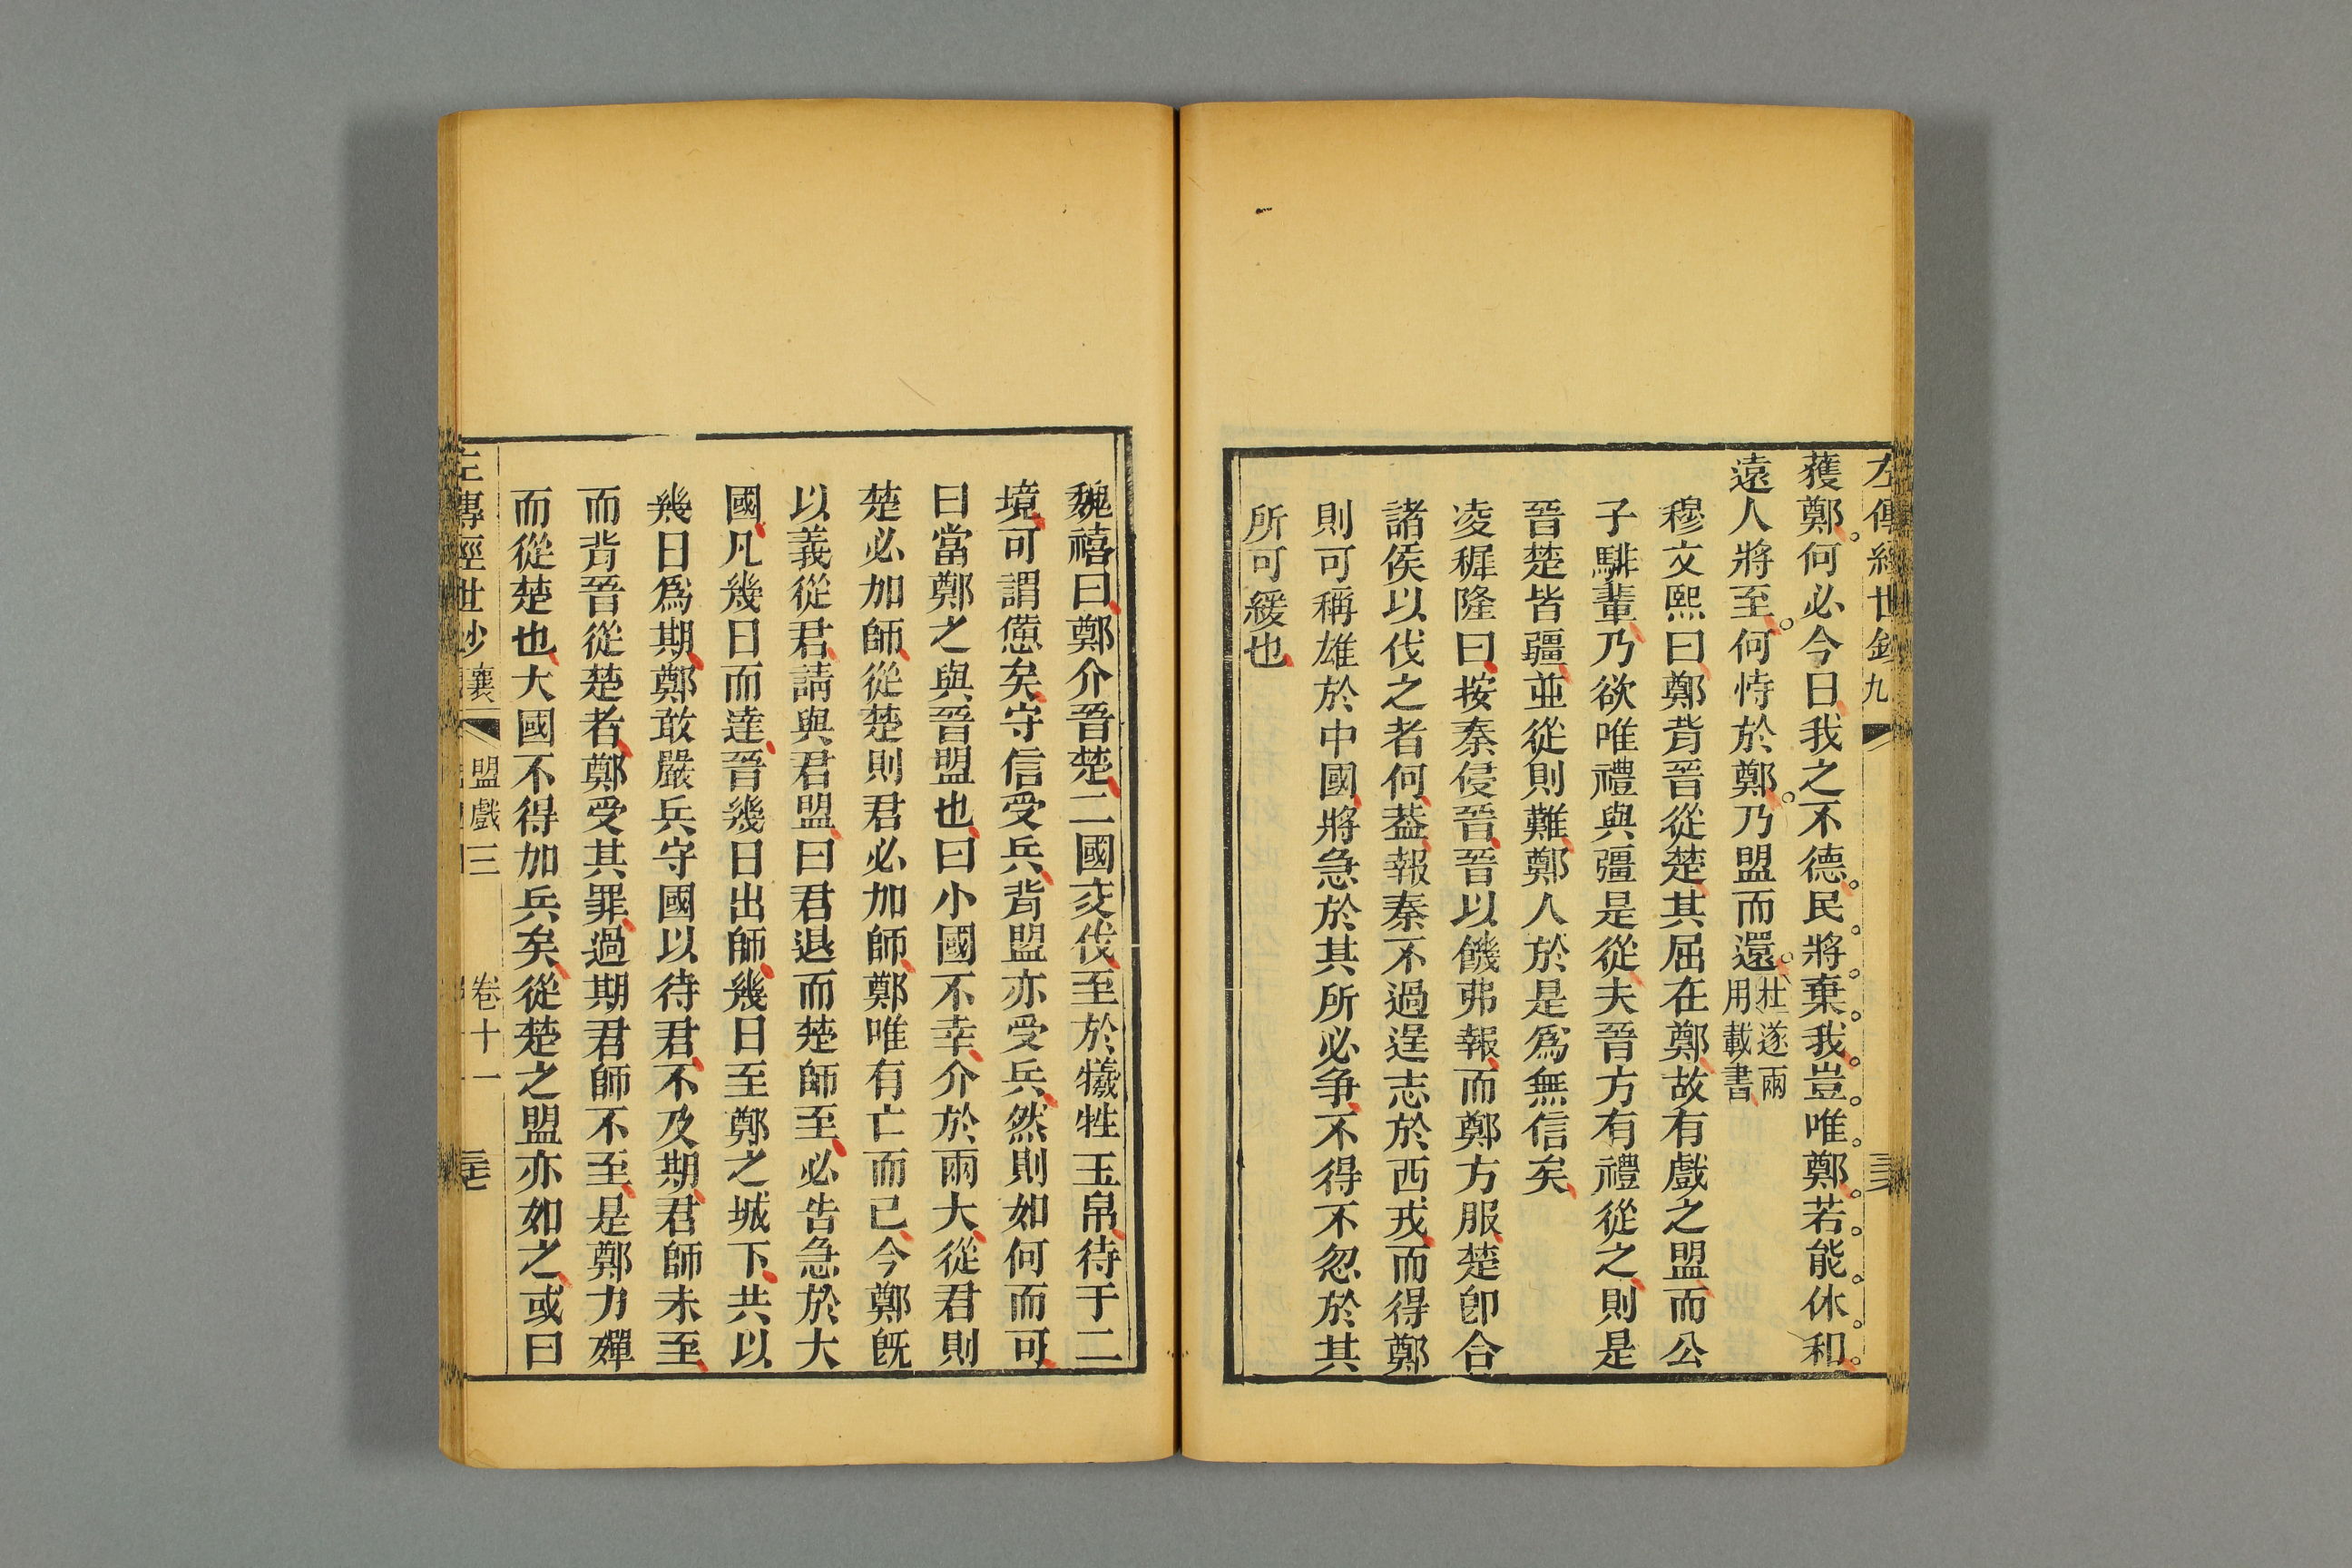 獲鄭何必今日我之不德民將棄我豈唯鄭若能休和
遠人將至何恃於鄭乃盟而還
遂兩
用載書
穆文熙曰鄭背晉從楚其屈在鄭故有戲之盟而公
子騑輩乃欲唯禮與彊是從夫晉方有禮從之則是
晉楚皆彊並從則難鄭人於是爲無信矣
凌稺隆曰按秦侵晉晉以饑弗報而鄭方服楚卽合
諸侯以伐之者何葢報秦不過逞志於西戎而得鄭
則可稱雄於中國將急於其所必爭不得不忽於其
所可緩也
魏禧曰鄭介晉楚二國交伐至於犧牲玉帛待于二
境可謂憊矣守信受兵背盟亦受兵然則如何而可
曰當鄭之與晉盟也曰小國不幸介於兩大從君則
楚必加師從楚則君必加師鄭唯有亡而已今鄭旣
以義從君請與君盟曰君退而楚師至必告急於大
國凡幾日而達晉幾日出師幾日至鄭之城下共以
幾日爲期鄭敢嚴兵守國以待君不及期君師未至
而背晉從楚者鄭受其罪過期君師不至是鄭力殫
而從楚也大國不得加兵矣從楚之盟亦如之或曰
左傳經世鈔 襄 盟戲三 卷十一